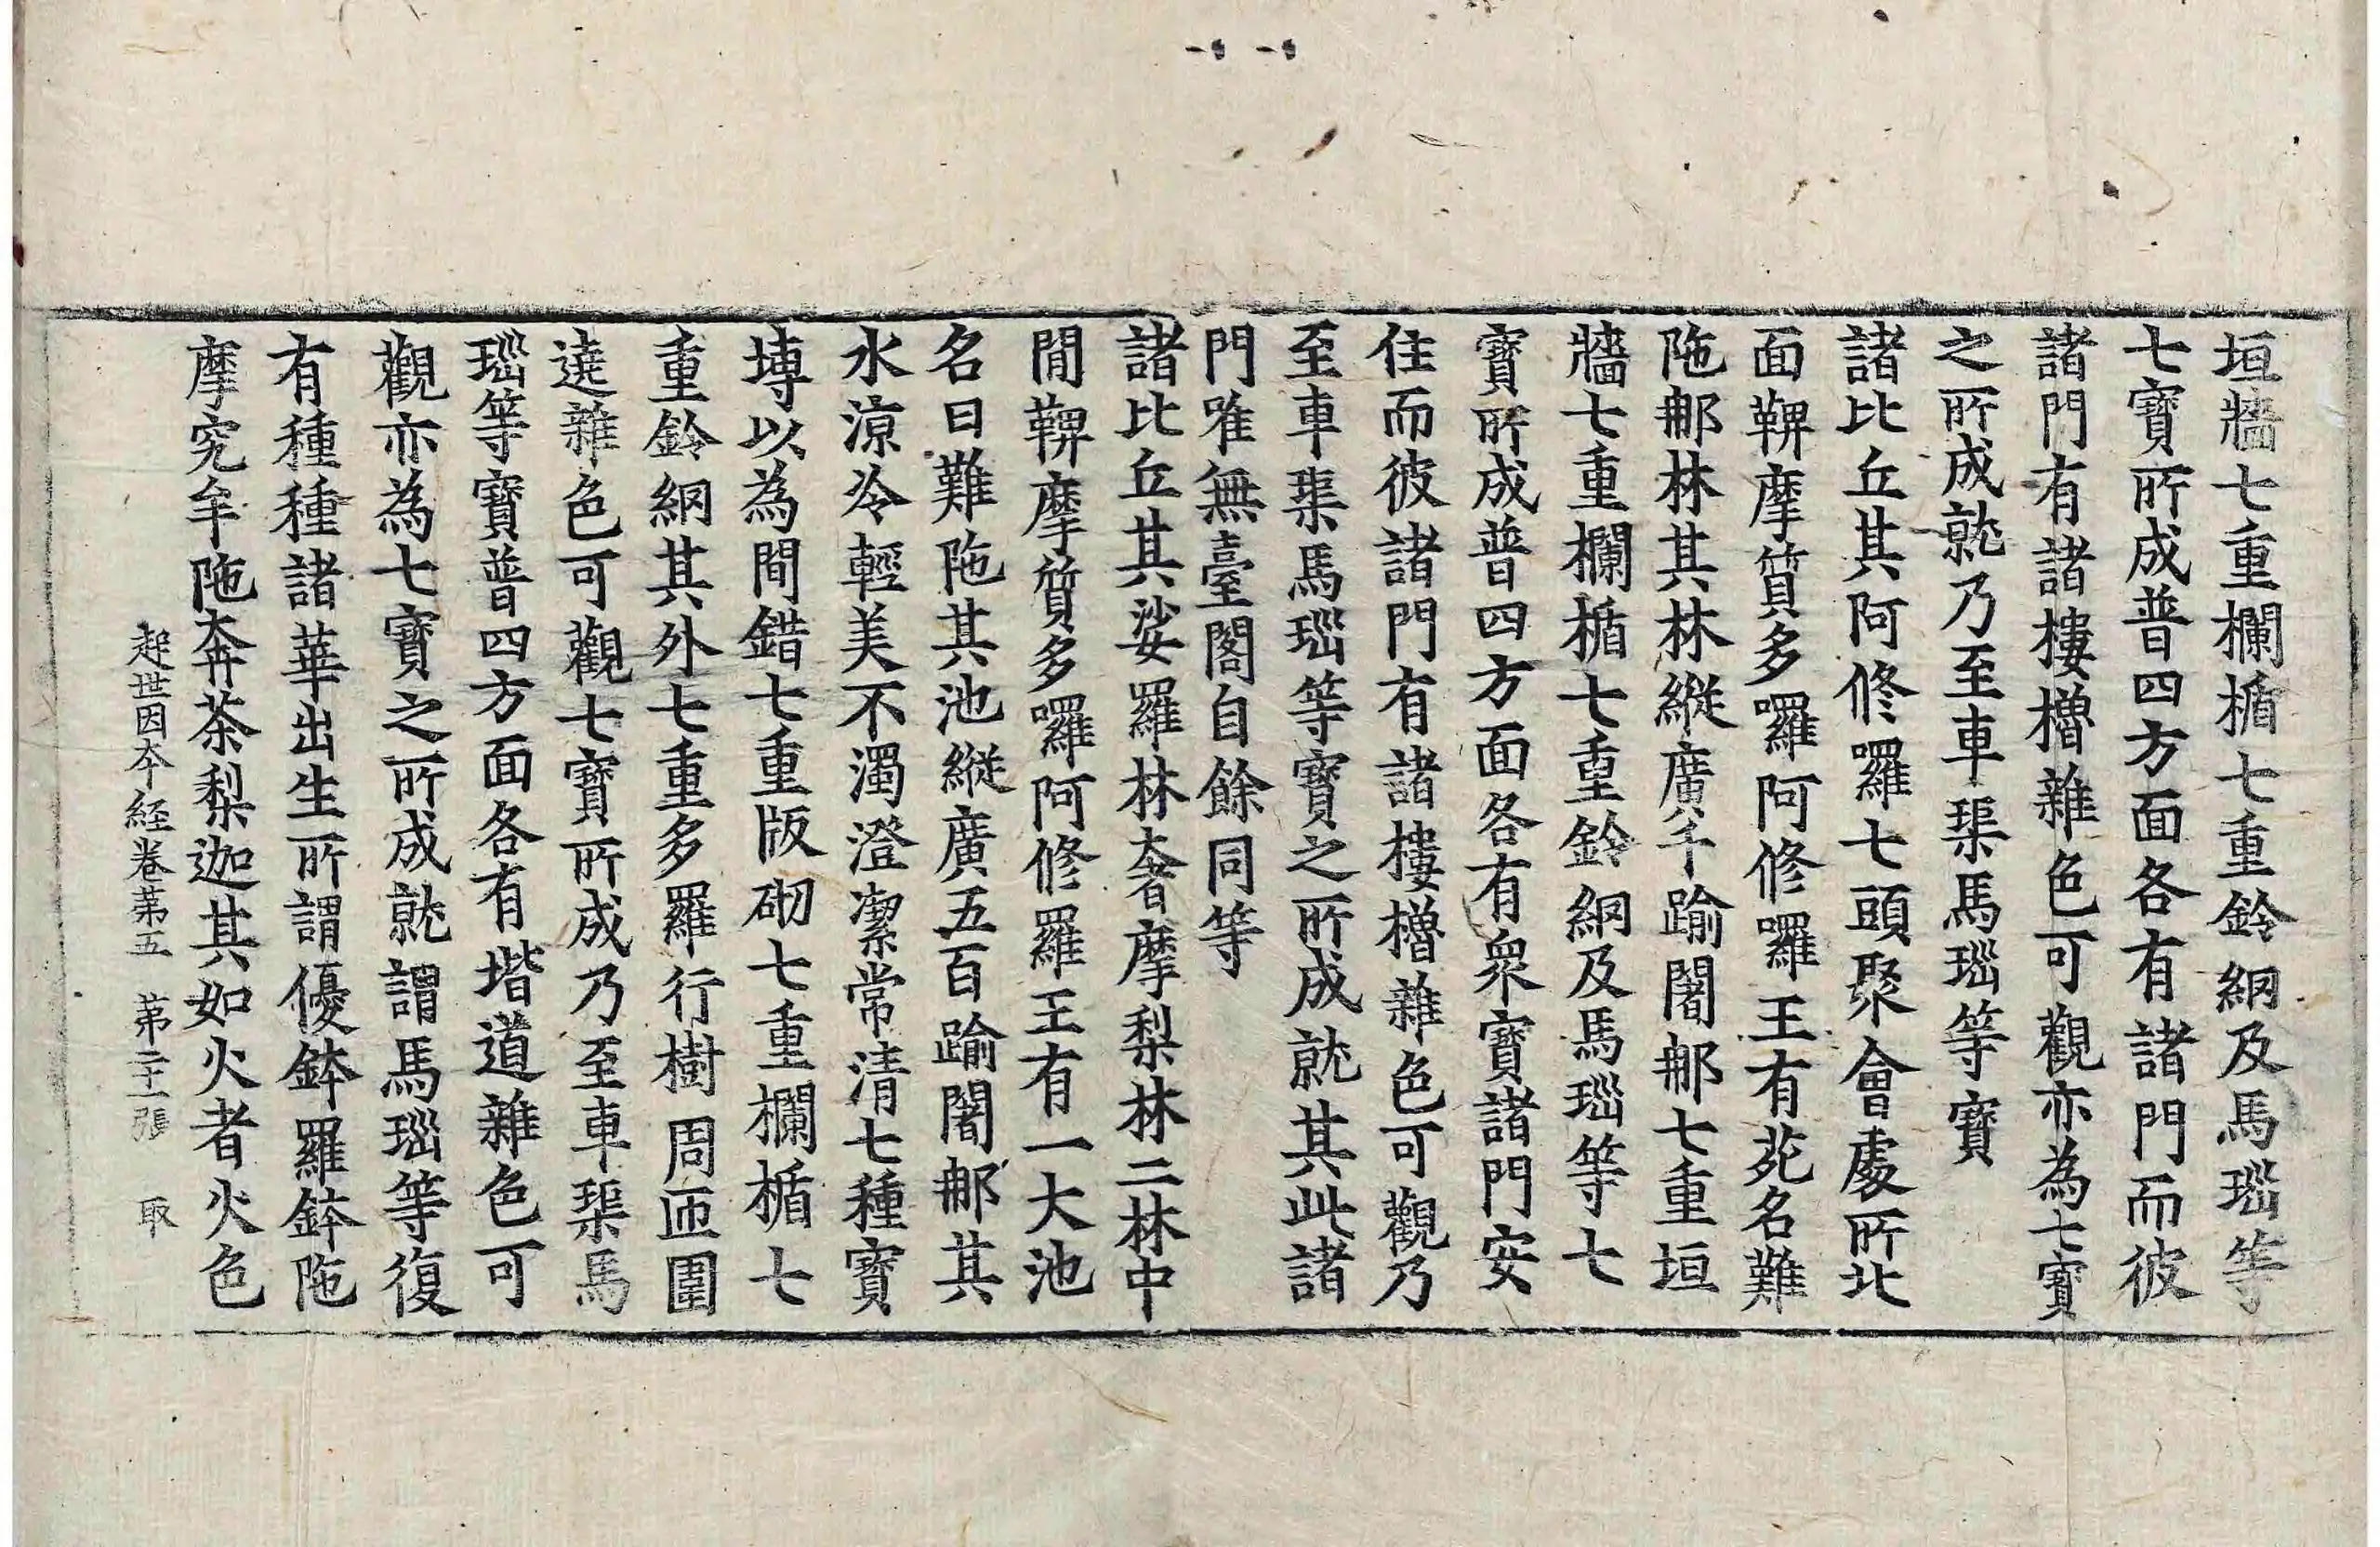 垣牆七重欄楯七重鈴網及馬瑙等
七寶所成普四方面各有諸門而彼
諸門有諸樓櫓雜色可觀亦為七寶
之所成就乃至車𤦲馬瑙等寶
諸比丘其阿修囉七頭聚會處所北
面鞞摩質多囉阿修囉王有苑名難
陁那林其林縱廣千踰闍那七重垣
牆七重欄楯七重鈴網及馬瑙等七
寶所成普四方面各有衆寶諸門安
住而彼諸門有諸樓櫓雜色可觀乃
至車𤦲馬瑙等寶之所成就其此諸
門唯無臺閣自餘同等
諸比丘其娑羅林奢摩梨林二林中
閒鞞摩質多囉阿修羅王有一大池
名曰難陁其池縱廣五百踰闍那其
水涼冷輕美不濁澄潔常清七種寶
塼以為間錯七重版砌七重欄楯七
重鈴網其外七重多羅行樹周匝圍
遶雜色可觀七寶所成乃至車𤦲馬
瑙等寶普四方面各有堦道雜色可
觀亦為七寶之所成就謂馬瑙等復
有種種諸華出生所謂優鉢羅鉢陁
摩究牟陁奔茶梨迦其如火者火色
起世因本經卷第五　第二十一張　取